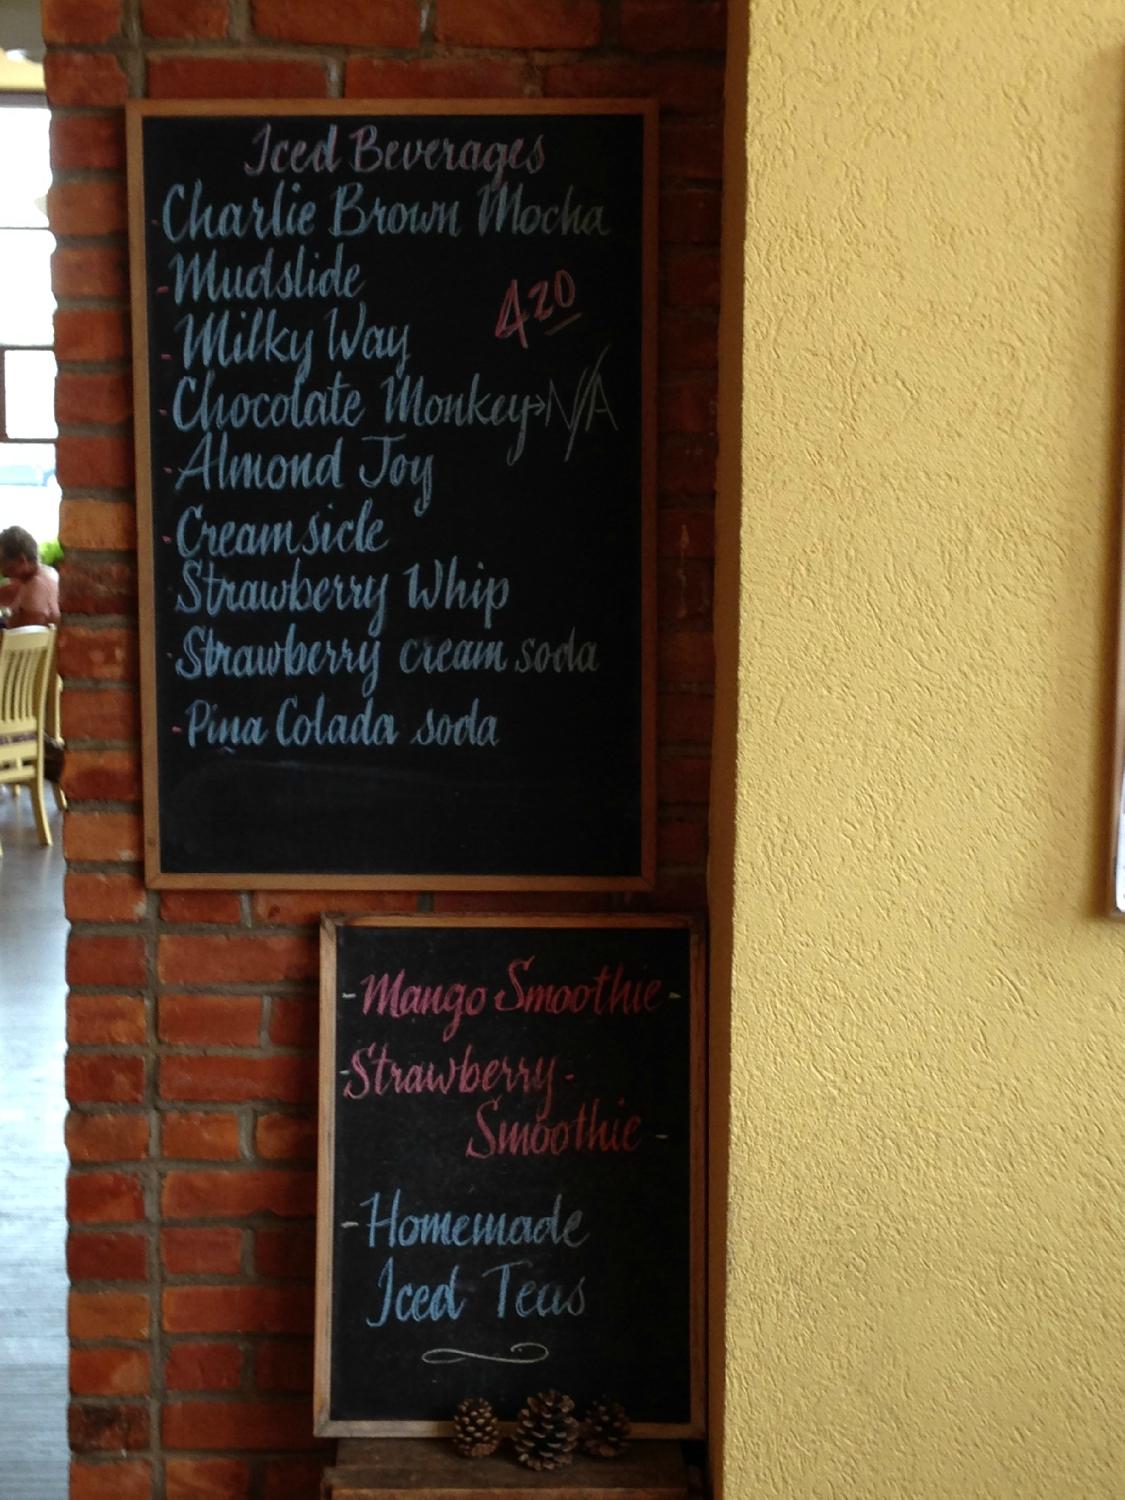 Iced Beverages
- Charlie Brown Mocha
- Mudslide
4 20
- Milky Way
- Chocolate Monkey → N/A
- Almond Joy
- Creamsicle
Strawberry Whip
- Strawberry cream soda
- Piña Colada soda
- Mango Smoothie -
- Strawberry -
Smoothie -
- Homemade
Iced Teas